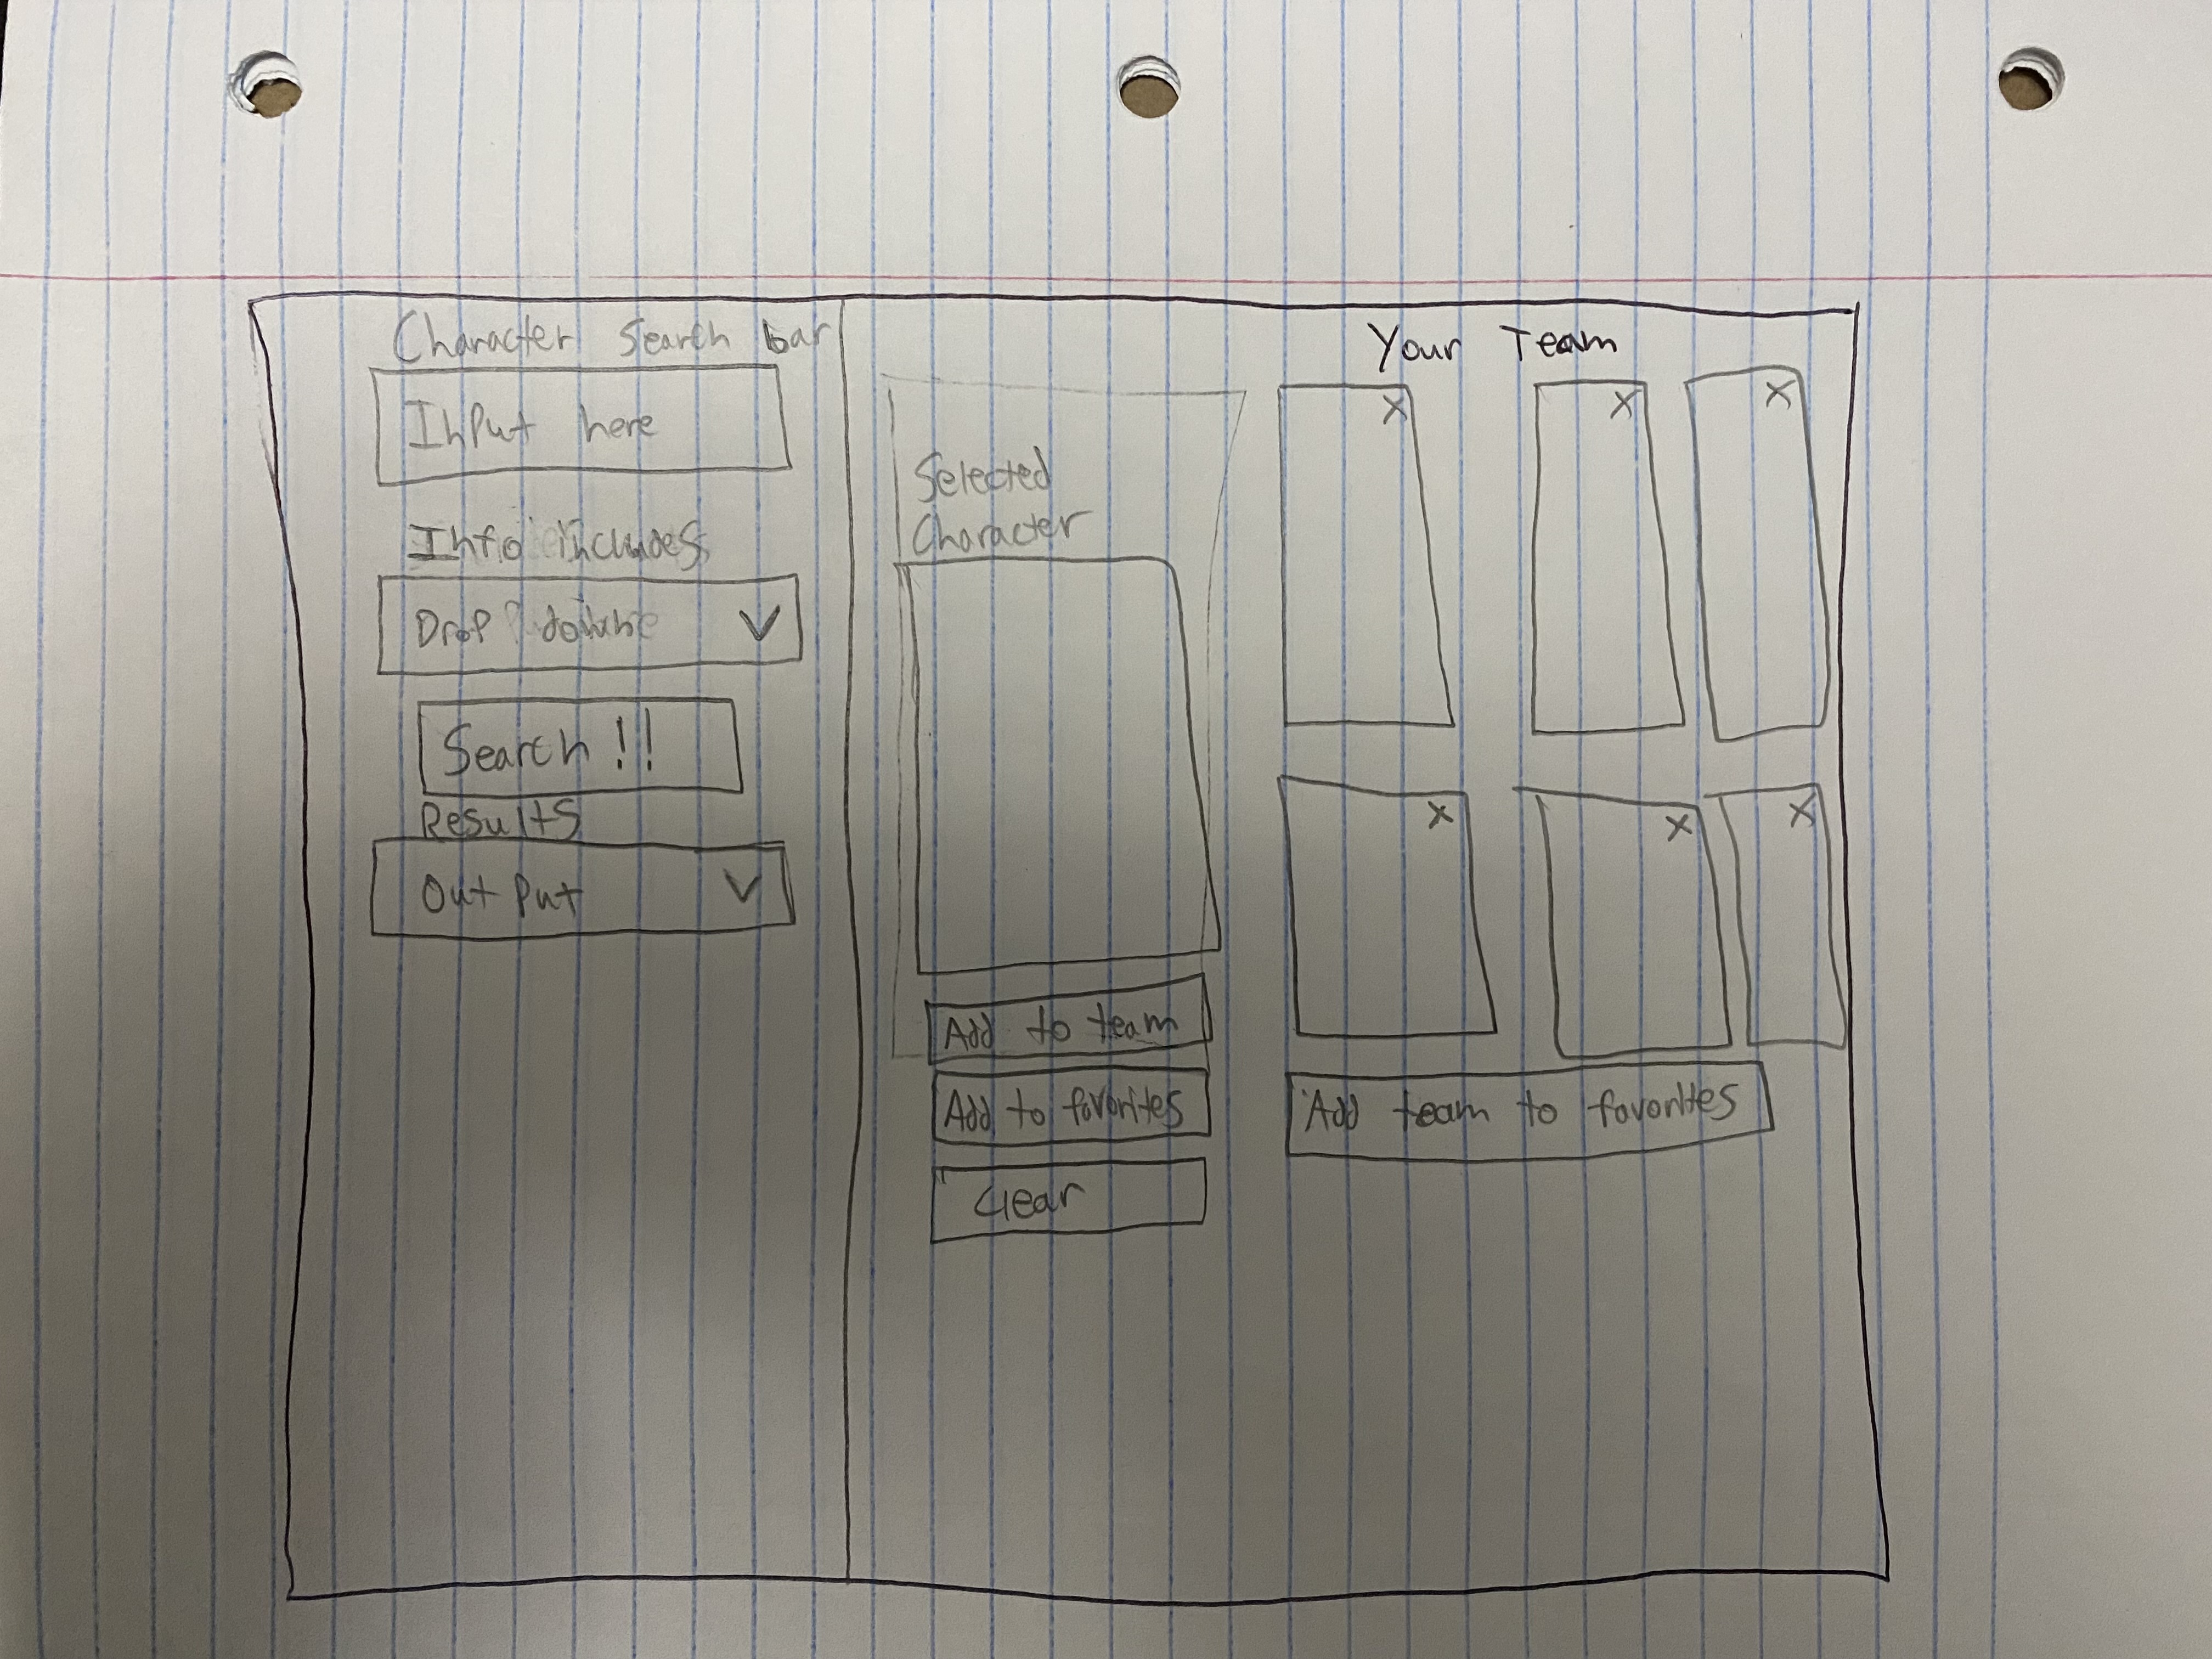 Character Search bar
Input here
Info includes
Drop down V
Search !!
Results
Out Put V
Selected
Character
Add to team
Add to favorites
Clear
Your Team
X X X
X X X
Add team to favorites